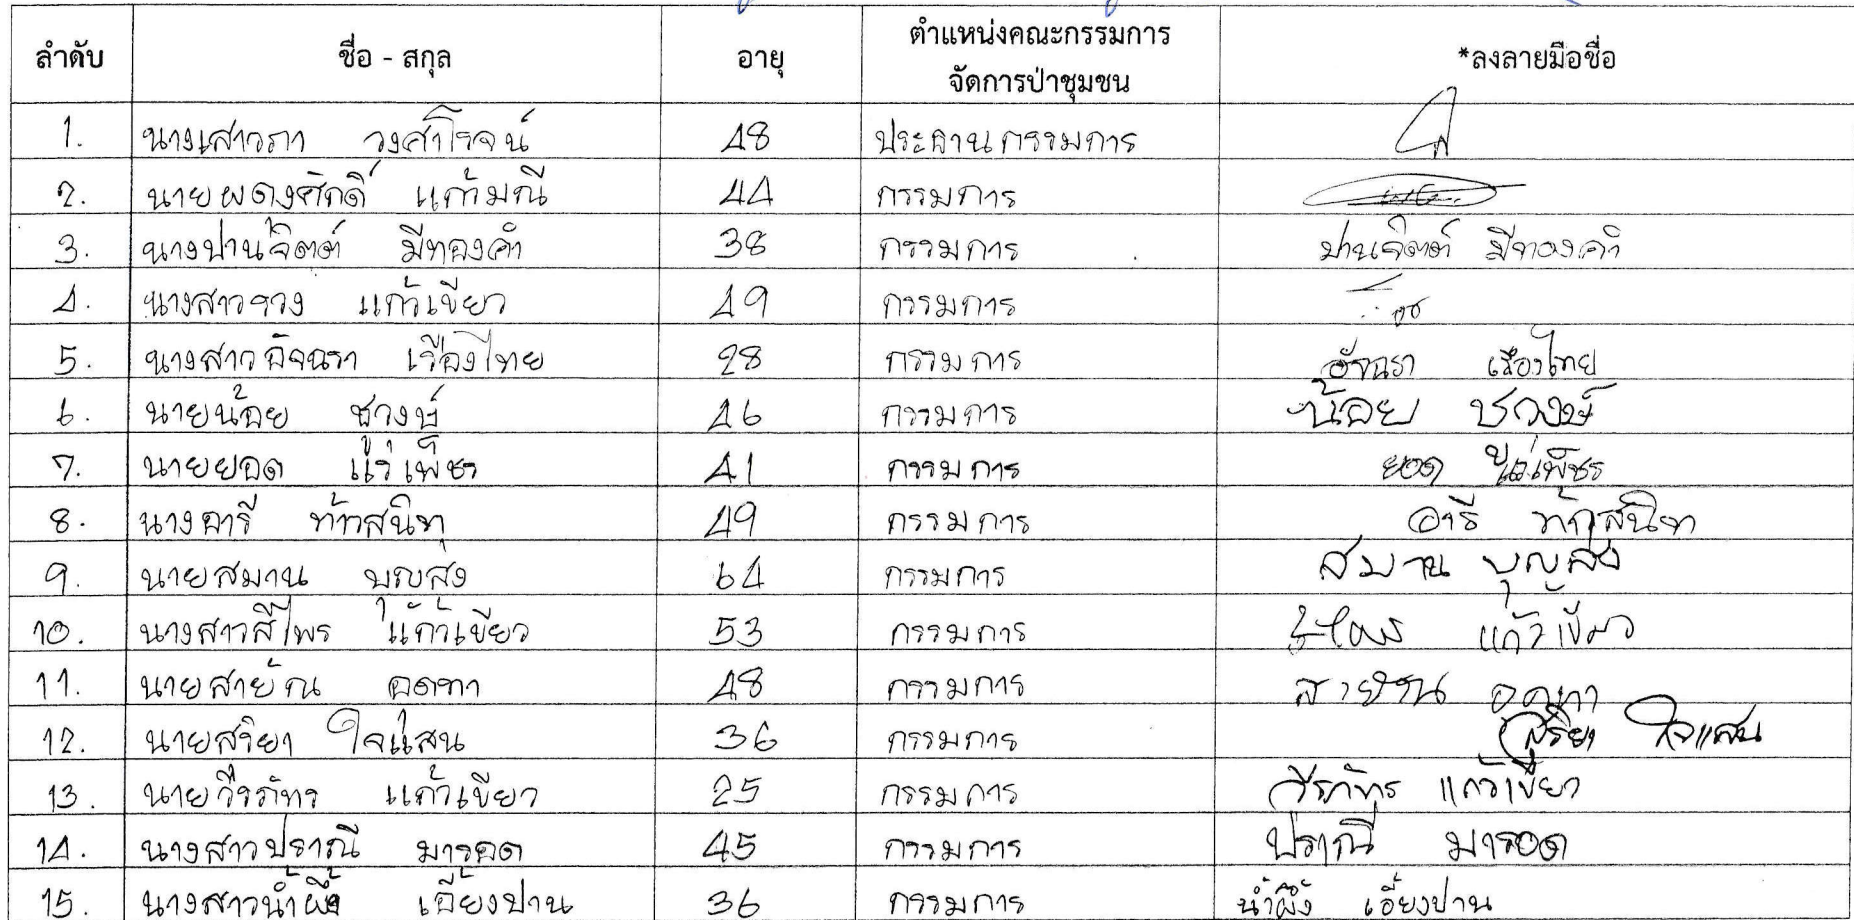 ลำดับ ชื่อ - สกุล อายุ ตำแหน่งคณะกรรมการ *ลงลายมือชื่อ
จัดการป่าชุมชน
1. นางเสาวภา วงศ์าโรจน์ 48 ประธานกรรมการ
2. นายผดงศักดิ์ แก้มณี 44 กรรมการ
3. นางปานจิตต์ มีทองคำ 38 กรรมการ ปานจิตต์ มีทองคำ
4. นางสาวรวง แก้วเขียว 49 กรรมการ
5. นางสาวอัจฉรา เรืองไทย 28 กรรมการ อัจฉรา เรืองไทย
6. นายน้อย ชวงษ์ 46 กรรมการ น้อย ชวงษ์
7. นายยอด แร่เพ็ชร 41 กรรมการ ยอด แร่เพ็ชร
8. นางอารี ท้าวสนิท 49 กรรมการ อารี ท้าวสนิท
9. นายสมาน บุญส่ง 64 กรรมการ สมาน บุญส่ง
10. นางสาวสีไพร แก้วเขียว 53 กรรมการ สีไพร แก้วเขียว
11. นายสายัณ อดทา 48 กรรมการ สายัน อดทา
12. นายสุริยา ใจแสน 36 กรรมการ สุริยา ใจแสน
13. นายวีรภัทร แก้วเขียว 25 กรรมการ วีรภัทร แก้วเขียว
14. นางสาวปราณี มารอด 45 กรรมการ ปราณี มารอด
15. นางสาวน้ำผึ้ง เอี้ยงปาน 36 กรรมการ น้ำผึ้ง เอี้ยงปาน